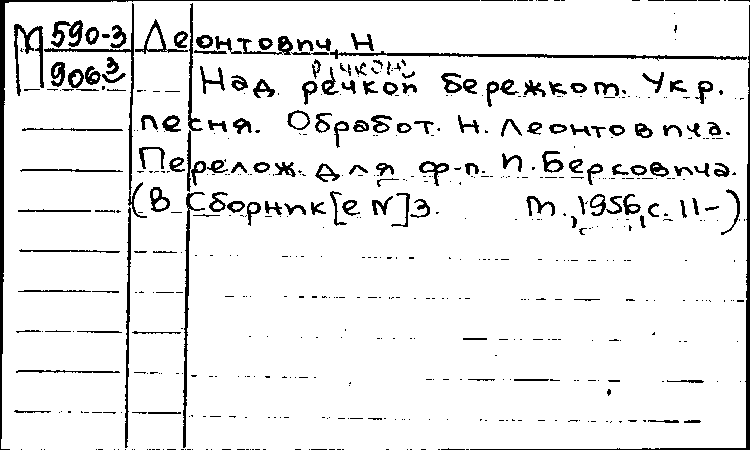 М 590-3 Леонтович, Н.
906³ річкою
Над речкой бережком. Укр.
песня. Обработ. Н. Леонтовича.
Перелож. для ф-п. И. Берковича.
(В Сборник[е №]3. М., 1956, с. 11-)